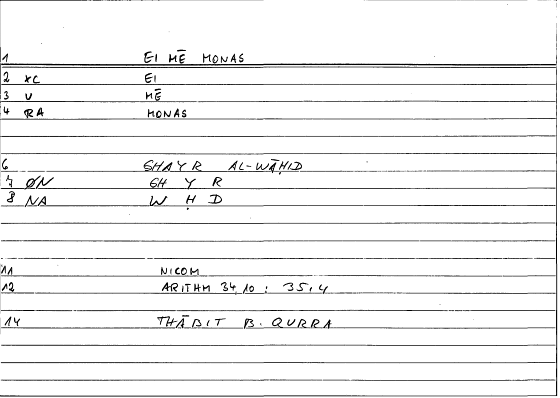 1 EI MĒ MONAS
2 XC EI
3 V MĒ
4 RA MONAS
6 GHAYR AL-WĀḤID
7 ØN GH Y R
8 NA W Ḥ D
11 NICOM
12 ARITHM 34,10 : 35,4
14 THĀBIT B. QURRA